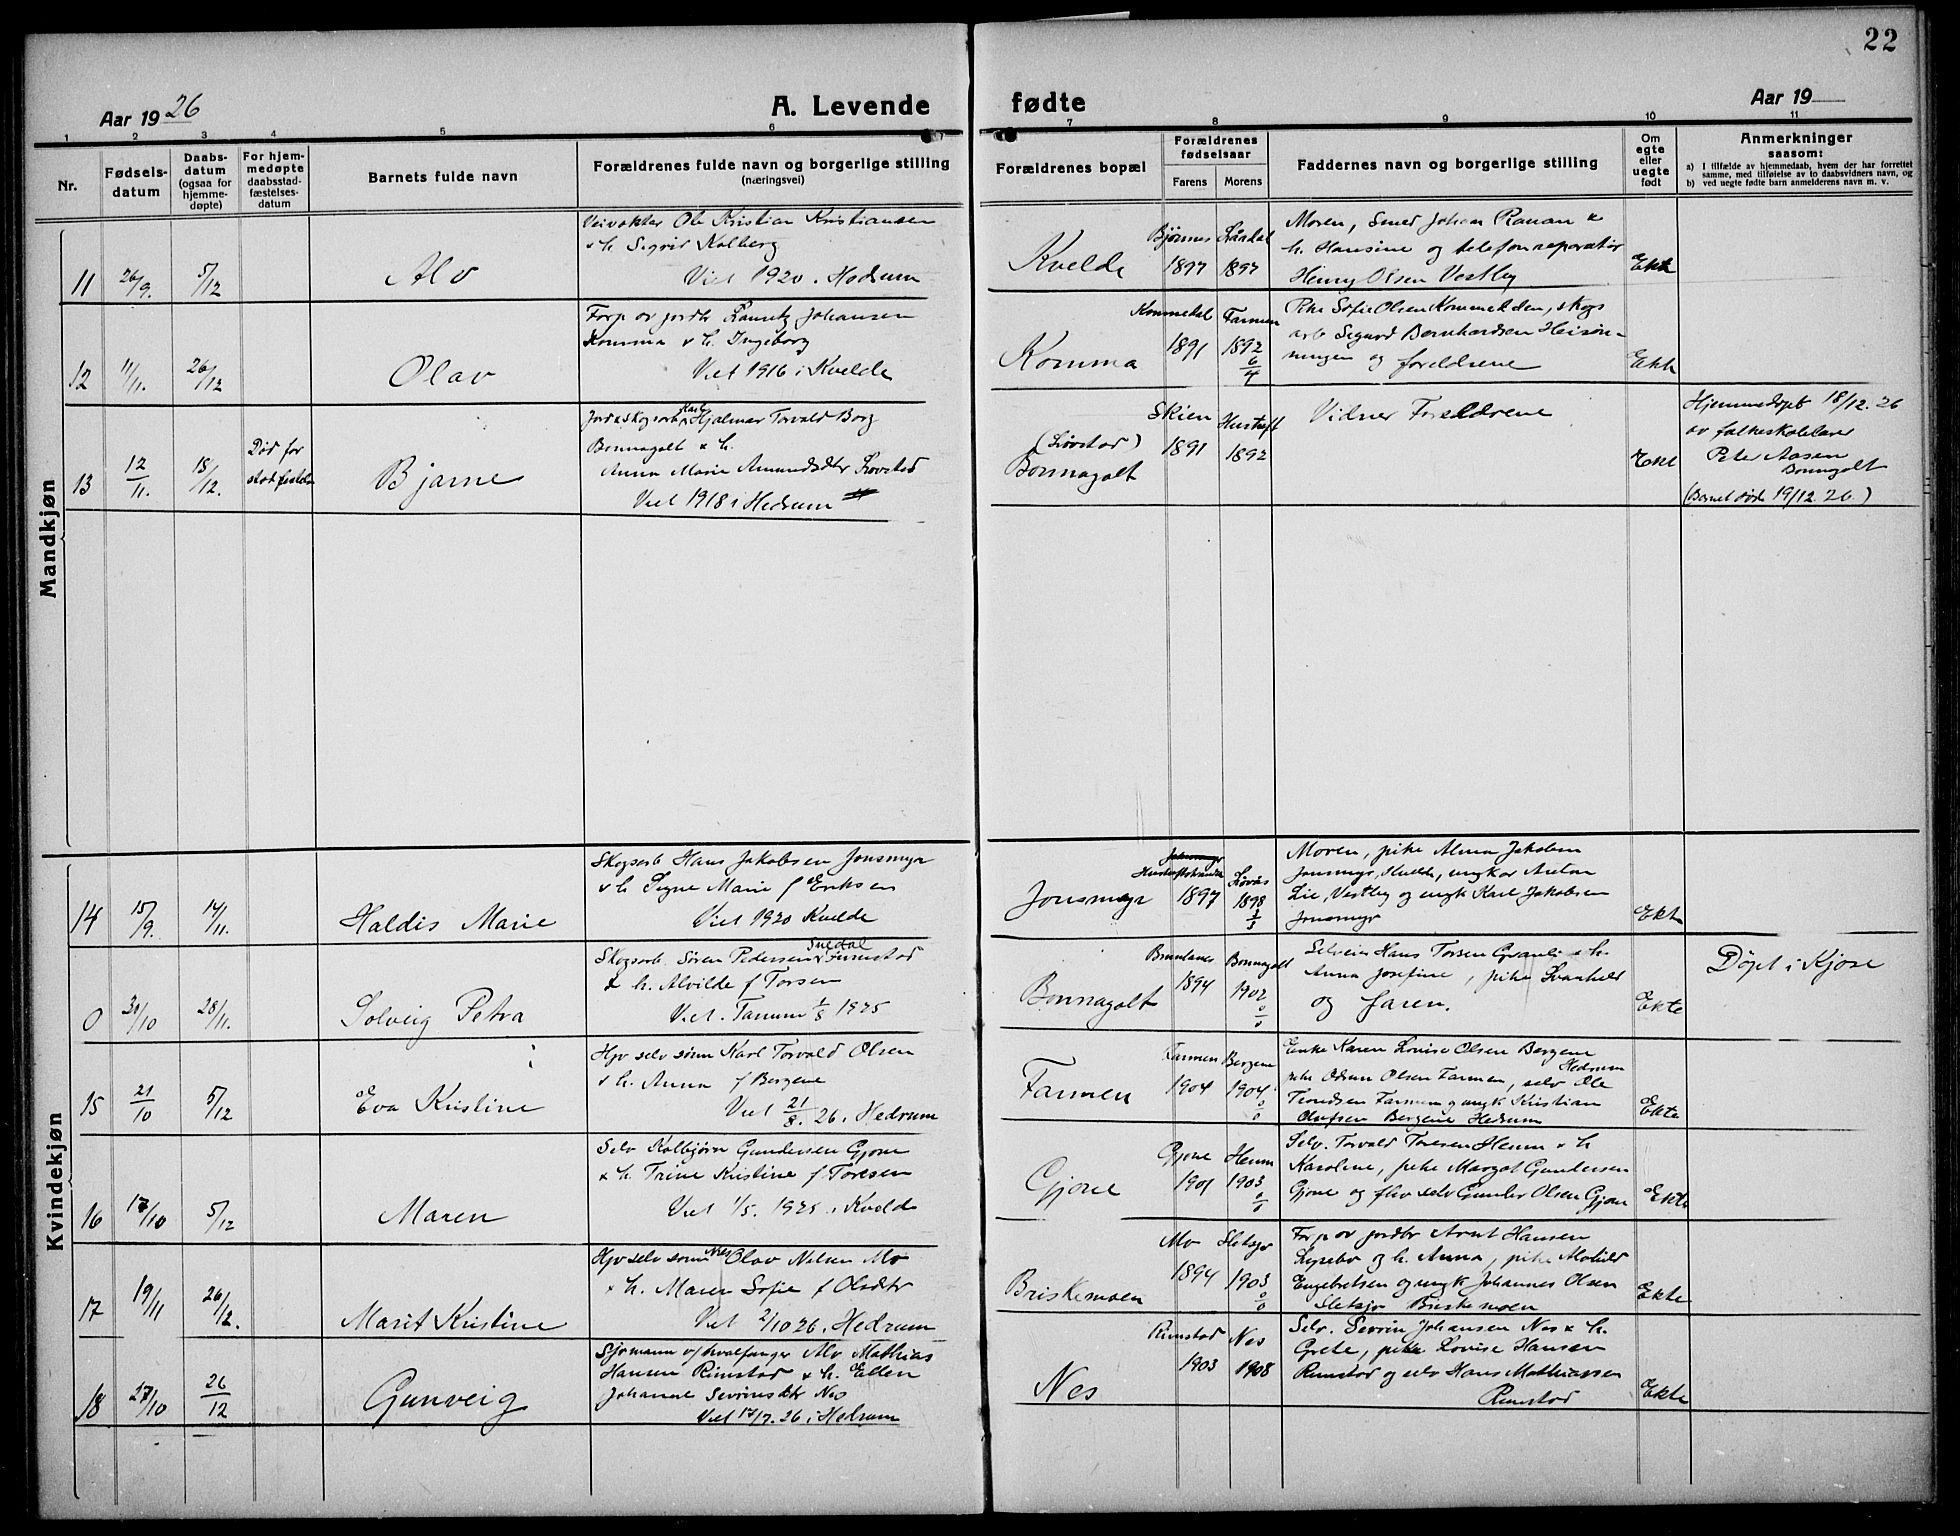 22
Aar 1926
A. Levende fødte
Aar 19
1 2 3 4 5 6 7 7 8 9 10 11
Nr.
Fødsels-
datum
Daabs-
datum
(ogsaa for
hjemme-
døpte)
For hjem-
medøpte
daabsstad-
fæstelses-
datum
Barnets fulde navn
Forældrenes fulde navn og borgerlige stilling
(næringsvei)
Forældrenes bopæl
Forældrenes
fødselsaar
Farens Morens
Faddernes navn og borgerlige stilling
Om
egte
eller
uegte
født
Anmerkninger
saasom:
a) I tilfælde av hjemmedaab, hvem der har forrettet
samme, med tilføielse av to daabsvidners navn, og
b) ved uegte fødte barn anmelderens navn m. v.
Mandkjøn
11 26/9. 5/12 Alv
Veivokter Ole Kristian Kristiansen
& h. Sigrid Kolberg
Viet 1920. Hedrum
Kvelde
Bjørnes 1897
Laardal 1897
Moren, Smed Johan Ranan &
h. Hansine og telefonreparatør
Henry Olsen Vestby
Ekte
12 11/11. 26/12 Olav
Forp av jordbr Lauritz Johansen
Komma & h. Ingeborg
Viet 1916 i Kvelde
Komma
Kommedal 1891
Farmen 1892 6/4
Pike Sofie Olsen Kommedalen, skogs
arb Sigurd Bernhardsen Heisøn-
ningen og foreldrene
Ekte
13 12/11. 18/12. Død før stadfestelse Bjarne
Jord & Skogsarb Karl Hjalmar Torvald Borg
Bonnagolt & h.
Anna Marie Amundsdtr Løvstad
Viet 1918 i Hedrum
(Løvstad)
Bonnagolt
Skien 1891
Hustoft 1892
Vidner Foreldrene
Ekte
Hjemmedøpt 18/12. 26
av folkeskolelærer
Peter Aasen
Bonnagolt
(Barnet døde 19/12. 26.)
Kvindekjøn
14 15/9. 14/11. Haldis Marie
Skogsarb Hans Jakobsen Jonsmyr
& h. Signe Marie f Eriksen
Viet 1920 Kvelde
Jonsmyr
1897
Løvås 1898 3/3
Moren, pike Alma Jakobsen
Jonsmyr, Kvelde, ungkar Anton
Lie, Vestby og ungk Karl Jakobsen
Jonsmyr
Ekte
0 30/10 28/11. Solveig Petra
Skogsarb. Søren Pedersen Furustad
& h. Alvilde f Torsen
Viet. Tanum 1/8 1925
Bonnagolt
Brunlanes 1894
Bonnagolt 1902 0/0
Selveier Hans Torsen Granli & h.
Anna Josefine, pike Svanhild
og faren.
Ekte
Døpt i Kjose
15 21/10 5/12 Eva Kristine
Hjv selv sønn Karl Torvald Olsen
& h. Anna f Bergene
Viet 21/8. 26. Hedrum
Farmen
Farmen 1904
Bergene 1904 0/0
Enke Karen Lovise Olsen Bergene
Hedrum
pike Odrun Olsen Farmen, selv Ole
Farmen og ungk Kristian
Olufsen Bergene Hedrum
Ekte
16 17/10 5/12 Maren
Selv Kolbjørn Gundersen Gjone
& h. Trine Kristine f Toresen
Viet 1/5. 1925. i Kvelde
Gjone
Gjone 1901
Hemm 1903 0/0
Selv. Torvald Toresen Hemm & h
Karoline, pike Margot Gundersen
Gjone og fhv selv Gunder Olsen Gjone
Ekte
17 19/11 26/12. Marit Kristine
Hjv selv sønn Nils Olav Nilsen Mo
& h. Maren Sofie f Olsdtr
Viet 2/10 26. Hedrum
Briskemoen
Mo 1894
Sletsjø 1903 0/0
Forp av jordbr Arnt Hansen
Lysebo og h. Anna, pike Mathild
Engebretsen og ungk Johannes Olsen
Sletsjø Briskemoen
Ekte
18 27/10 26/12 Gunveig
Sjømann o/hvalfanger Alv Mathias
Hansen Rimstad & h. Ellen
Johanne Severinsdtr Nes
Viet 17/7. 26 i Hedrum
Nes
Rimstad 1903
Nes 1908
Selv. Severin Johansen Nes & h.
Grete, pike Lovise Hansen
Rimstad og selv Hans Mathiassen
Rimstad
Ekte